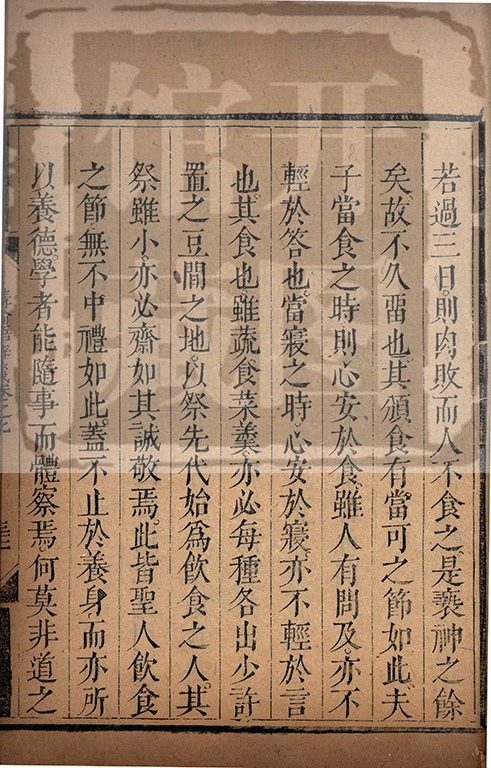 若過三日則肉敗而人不食之是褻神之餘
矣故不久畱也其頒食有當可之節如此夫
子當食之時則心安於食雖人有問及亦不
輕於答也當寢之時心安於寢亦不輕於言
也其食也雖蔬食菜羹亦必每種各出少許
置之豆間之地以祭先代始爲飲食之人其
祭雖小亦必齋如其誠敬焉此皆聖人飲食
之節無不中禮如此蓋不止於養身而亦所
以養德學者能隨事而體察焉何莫非道之